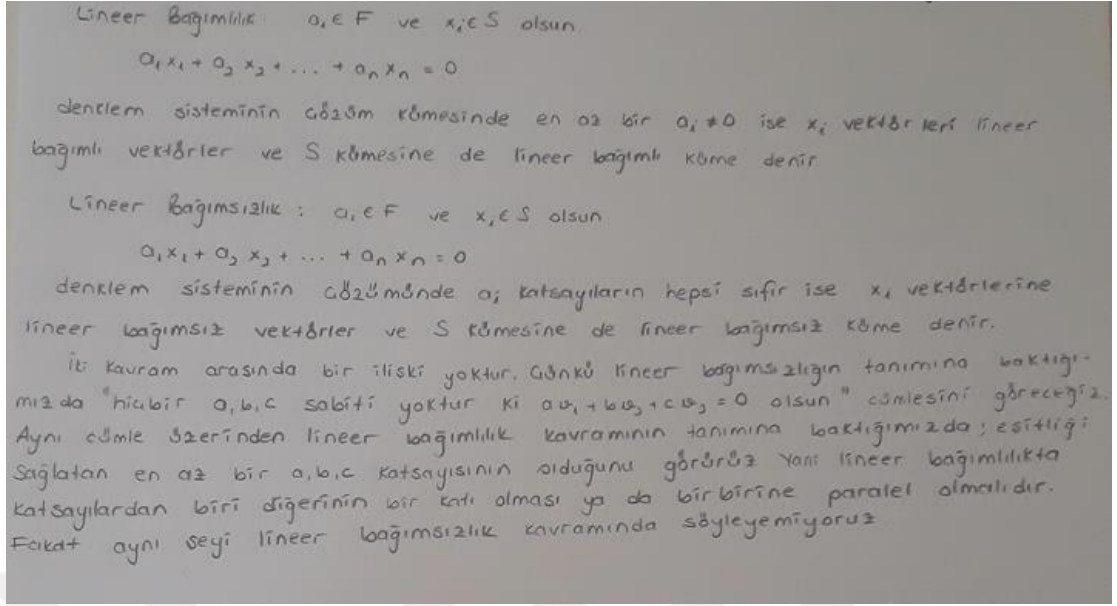 Lineer Bağımlılık: aᵢ ∈ F ve xᵢ ∈ S olsun.
a₁x₁ + a₂x₂ + ... + aₙxₙ = 0
denklem sisteminin çözüm kümesinde en az bir aᵢ ≠ 0 ise xᵢ vektörleri lineer
bağımlı vektörler ve S kümesine de lineer bağımlı küme denir.
Lineer Bağımsızlık : aᵢ ∈ F ve xᵢ ∈ S olsun
a₁x₁ + a₂x₂ + ... + aₙxₙ = 0
denklem sisteminin çözümünde aᵢ katsayıların hepsi sıfır ise xᵢ vektörlerine
lineer bağımsız vektörler ve S kümesine de lineer bağımsız küme denir.
İki kavram arasında bir ilişki yoktur. Çünkü lineer bağımsızlığın tanımına baktığı-
mızda "hiçbir a,b,c sabiti yoktur ki av₁ + bv₂ + cv₃ = 0 olsun" cümlesini göreceğiz.
Aynı cümle üzerinden lineer bağımlılık kavramının tanımına baktığımızda; eşitliği
sağlatan en az bir a,b,c katsayısının olduğunu görürüz Yani lineer bağımlılıkta
katsayılardan biri diğerinin bir katı olması ya da birbirine paralel olmalıdır.
Fakat aynı şeyi lineer bağımsızlık kavramında söyleyemiyoruz